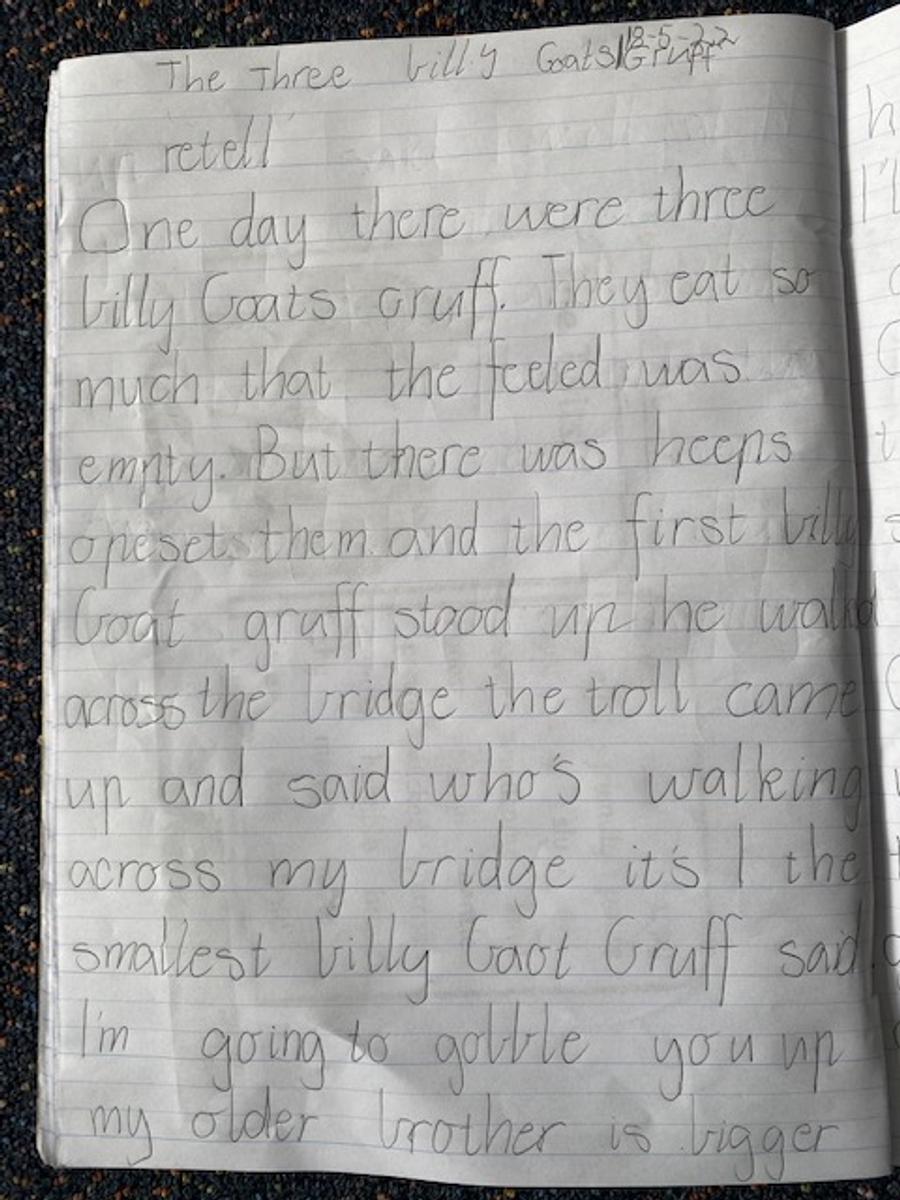 The Three billy Goats Gruff 18-5-22
retell
One day there were three
billy Goats gruff. They eat so
much that the feeled was
empty. But there was heeps
opeset them and the first billy
Goat gruff stood up he walkd
across the bridge the troll came
up and said who's walking
across my bridge it's I the
smallest billy Gaot Gruff said.
I'm going to gobble you up
my older brother is bigger